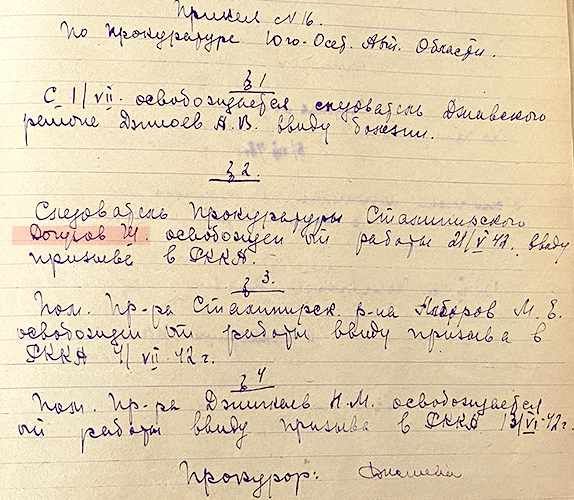 Приказ № 16.
По прокуратуре Юго-Осет. Авт. Области.
§ 1
С 1/VII. освобождается следователь Джавского
района Джиоев А.В. ввиду болезни.
§ 2.
Следователь Прокуратуры Сталинирского
Догузов освобожден от работы 21/V 42. ввиду
призыва в РККА.
§ 3.
Пом. Пр-ра Сталинирск. р-на М. Е.
освобожден от работы ввиду призыва в
РККА 4/VII-42 г.
§ 4
Пом. Пр-ра Н.М. освобождается
от работы ввиду призыва в РККА 13/VI-42 г.
Прокурор: